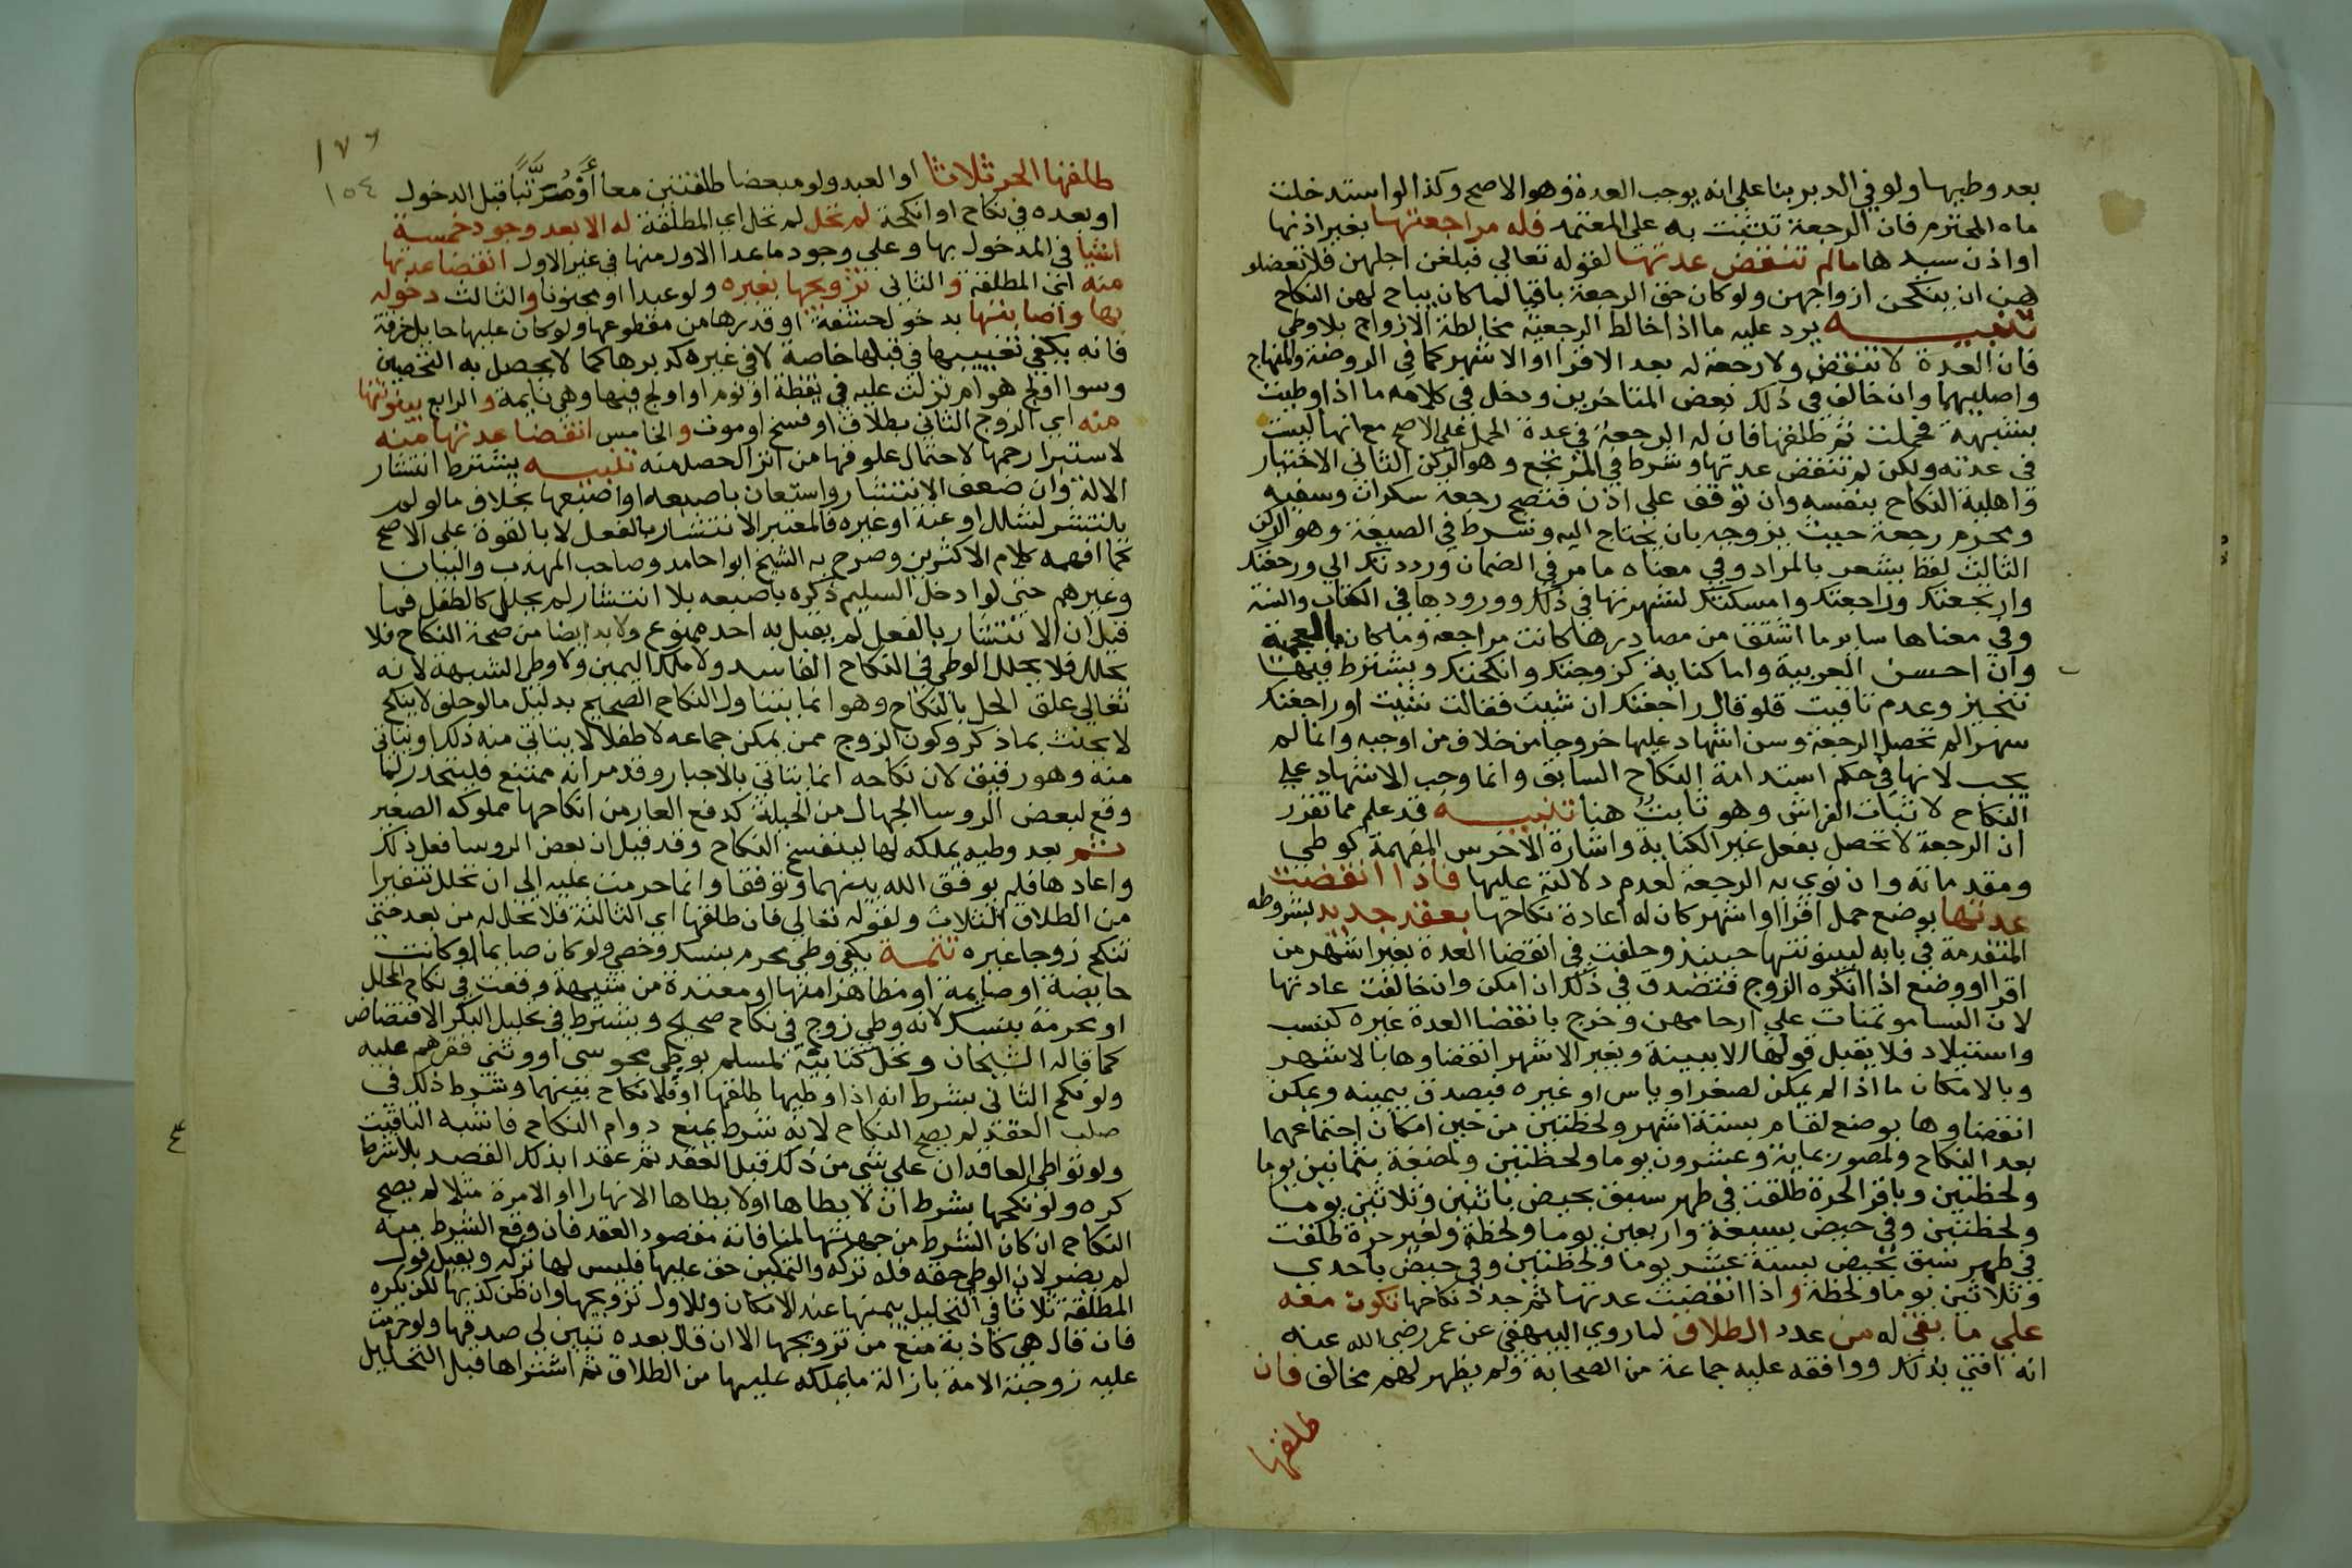 بعد وطيها ولو في الدبر بنا على انه يوجب العدة وهو الاصح وكذا لو استدخلت
ماه المحترم فان الرجعة تثبت به على المعتمد فله مراجعتها بغير اذنها
او اذن سيدها مالم تنقض عدتها لقوله تعالي فبلغن اجلهن فلا تعضلو
هن ان ينكحن ازواجهن ولو كان حق الرجعة باقيا لما كان يباح لهن النكاح
تنبيه يرد عليه ما اذا خالط الرجعية مخالطة الازواج بلا وطي
فان العدة لا تنقضي ولا رجعة له بعد الاقرا او الاشهر كما في الروضة والمنهاج
واصليهما وان خالف في ذلك بعض المتاخرين ودخل في كلامه ما اذا وطيت
بشبهة فحملت ثم طلقها فان له الرجعة في عدة الحمل على الاصح مع انها ليست
في عدته ولكن لم تنقض عدتها وشرط في المرتجع وهو الركن الثاني الاختيار
واهلية النكاح بنفسه وان توقف على اذن فتصح رجعة سكران وسفيه
ومحرم رجعة حيث يزوجه بان يحتاج اليه وشرط في الصيغة وهو الركن
الثالث لفظ يشعر بالمراد وفي معناه ما مر في الضمان ورددتك الي ورجعتك
وارتجعتك وراجعتك وامسكتك لشهرتها في ذلك وورودها في الكتاب والسنة
وفي معناها ساير ما اشتق من مصادرها كانت مراجعة وما كان بالعجمية
وان احسن العربية واما كناية كزوجتك وانكحتك ويشترط فيها
تنجيز وعدم تاقيت فلو قال راجعتك ان شيت فقالت شيت او راجعتك
شهرا لم تحصل الرجعة وسن اشهاد عليها خروجا من خلاف من اوجبه وانما لم
يجب لانها في حكم استدامة النكاح السابق وانما وجب الاشهاد علي
النكاح لاثبات الفراش وهو ثابت هنا تنبيه قد علم مما تقرر
ان الرجعة لا تحصل بفعل غير الكناية واشارة الاخرس المفهمة كوطي
ومقدماته وان نوي به الرجعة لعدم دلالته عليها فاذا انقضت
عدتها بوضع حمل اقرا او اشهر كان له اعادة نكاحها بعقد جديد بشروطه
المتقدمة في بابه لبينونتها حينيذ وحلفت في انقضا العدة بغير اشهر من
اقرا او وضع اذا انكره الزوج فتصدق في ذلك ان امكن وان خالفت عادتها
لان النسا موتمنات على ارحامهن وخرج بانقضا العدة غيره كنسب
واستيلاد فلا يقبل قولها الا ببينة وبغير الاشهر انقضاوها بالاشهر
وبالامكان ما اذا لم يمكن لصغر او ياس او غيره فيصدق بيمينه ويمكن
انقضاوها بوضع لتمام بستة اشهر ولحظتين من حين امكان اجتماعهما
بعد النكاح ولمصور بماية وعشرون يوما ولحظتين ولمضغة بثمانين يوما
ولحظتين وباقرا لحرة طلقت في طهر سبق بحيض باثنين وثلاثين يوما
ولحظتين وفي حيض بسبعة واربعين يوما ولحظة ولغير حرة طلقت
في طهر سبق بحيض بستة عشر يوما ولحظتين وفي حيض باحدي
وثلاثين يوما ولحظة واذا انقضت عدتها ثم جدد نكاحها تكون معه
علي ما بقي له من عدد الطلاق لما روي البيهقي عن عمر رضي الله عنه
انه افتي بذلك ووافقه عليه جماعة من الصحابة ولم يظهر لهم مخالف فان
طلقها
١٧٦
١٥٤
طلقها الحر ثلاثا او العبد ولو مبعضا طلقتين معا أو مرتبا قبل الدخول
او بعده في نكاح او انكحة لم تحل لم تحل اي المطلقة له الا بعد وجود خمسة
اشيا في المدخول بها وعلى وجود ما عدا الاول منها في غير الاول انقضا عدتها
منه اي المطلقة والثاني تزويجها بغيره ولو عبدا او مجنونا والثالث دخوله
بها واصابتها بدخول حشفة او قدرها من مقطوعها ولو كان عليها حايل خرقة
فانه يكفي تغييبها في قبلها خاصة لا في غيره كدبرها كما لا يحصل به التحصين
وسوا اولج هو ام نزلت عليه في يقظة او نوم او اولج فيها وهي نايمة والرابع بينونتها
منه اي الزوج الثاني بطلاق او فسخ او موت والخامس انقضا عدتها منه
لاستبرا رحمها لاحتمال علوقها من انزال حصل منه تنبيه يشترط انتشار
الالة وان ضعف الانتشار واستعان باصبعه او اصبعها بخلاف ما لو لم
ينتشر لشلل او عنة او غيره فالمعتبر الانتشار بالفعل لا بالقوة على الاصح
كما افهمه كلام الاكثرين وصرح به الشيخ ابو حامد وصاحب المهذب والبيان
وغيرهم حتى لو ادخل السليم ذكره باصبعه بلا انتشار لم يحلل كالطفل فما
قيل ان الانتشار بالفعل لم يقبل به احد ممنوع ولا بد ايضا من صحة النكاح فلا
يحلل فلا يحلل الوطي في النكاح الفاسد ولا ملك اليمين ولا وطي الشبهة لانه
تعالي علق الحل بالنكاح وهو انما يتناول النكاح الصحيح بدليل ما لو حلف لا ينكح
لا يحنث بما ذكر وكون الزوج ممن يمكن جماعه لا طفلا لا يتاتي منه ذلك او يتاتي
منه وهو رقيق لان نكاحه انما يتاتي بالاجبار وقد مر انه ممتنع فليتحذر لما
وقع لبعض الروسا الجهال من الحيلة كدفع العار من انكاحها مملوكه الصغير
ثم بعد وطيه يملكه لها لينفسخ النكاح وقد قيل ان بعض الروسا فعل ذلك
واعادها فلم يوفق الله بينهما وتفرقا وانما حرمت عليه الي ان تحلل تنفيرا
من الطلاق الثلاث ولقوله تعالي فان طلقها اي الثالثة فلا تحل له من بعد حتى
تنكح زوجا غيره تتمة يكفي وطي محرم بنسك وخصي ولو كان صايما او كانت
حايضة او صايمة او مظاهرا منها او معتدة من شبهة وقعت في نكاح المحلل
او محرمة بنسك لانه وطي زوج في نكاح صحيح ويشترط في تحليل البكر الافتضاض
كما قاله الشيخان وتحل كتابية لمسلم بوطي مجوسي او وثني نقرهم عليه
ولو نكح الثاني بشرط انه اذا وطيها طلقها او فلا نكاح بينهما وشرط ذلك في
صلب العقد لم يصح النكاح لانه شرط يمنع دوام النكاح فاشبه التاقيت
ولو تواطى العاقدان على شي من ذلك قبل العقد ثم عقدا بذلك القصد بلا شرط
كره ولو نكحها بشرط ان لا يطاها او لا يطاها الا نهارا او الا مرة مثلا لم يصح
النكاح ان كان الشرط من جهتها لمنافاته مقصود العقد فان وقع الشرط منه
لم يضر لان الوطي حقه فله تركه والتمكين حق عليها فليس لها تركه ويقبل قول
المطلقة ثلاثا في التحليل بيمينها عند الامكان وللاول تزويجها وان ظن كذبها لكن يكره
فان قال هي كاذبة منع من تزويجها الا ان قال بعده تبين لي صدقها ولو حرمت
عليه زوجته الامة بازالة ما يملكه عليها من الطلاق ثم اشتراها قبل التحليل